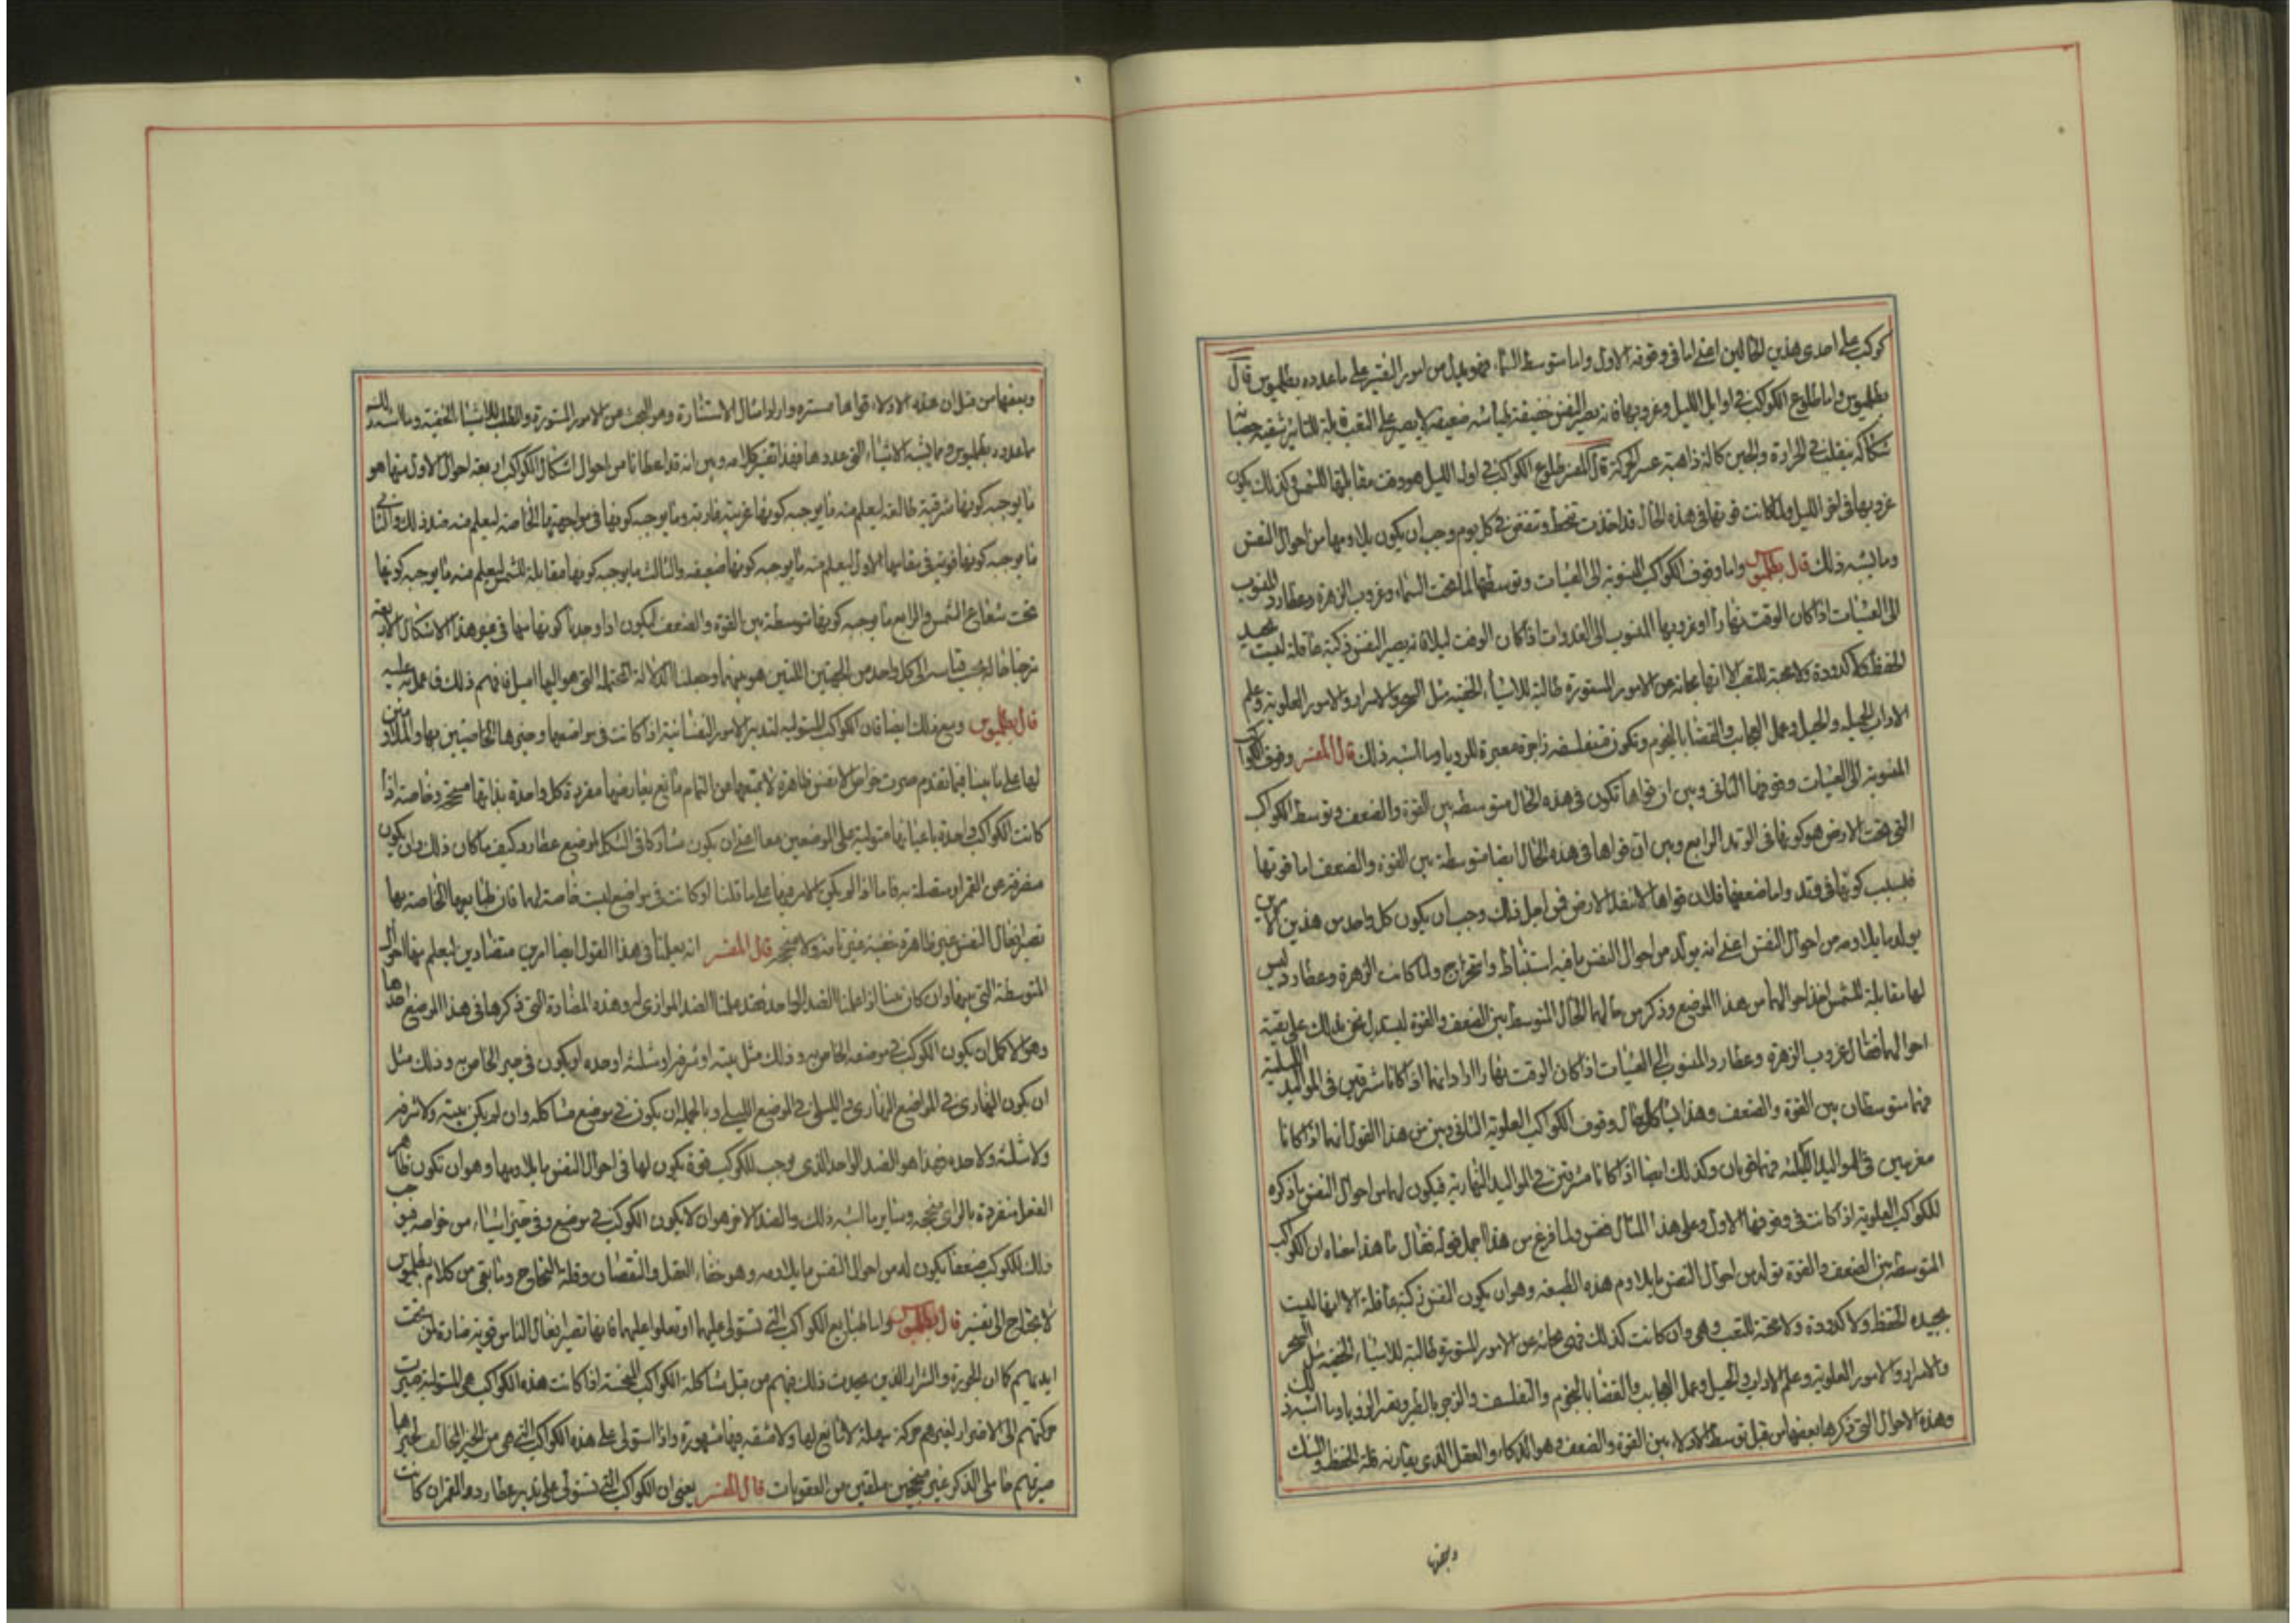 كوكب على احدى هذين الحالين اعنى اما فى وقوفه الاول واما متوسط السماء فهو يدل من امور النفس على ما عدده بطلميوس قال
بطلميوس واما طلوع الكواكب فى اوايل الليل وغروبها فانه يصير النفس خفيفة طياشه ضعيفه لا تصبر على التعب قابلة للتاثير شقيه
شكاكه ينقلب فى الحرارة والجبن كالة ذاهبة عسر الحركة قال المفسر طلوع الكواكب فى اول الليل هو وقت مقابلتها للشمس وكذلك يكون
غروبها فى اخر الليل ولما كانت قوتها فى هذه الحال قد اخذت تنحط وتنقص فى كل يوم وجب ان يكون يلاومها من احوال النفس
وما اشبه ذلك قال بطلميوس واما وقوف الكواكب المنسوبة الى العشيات وتوسطها لما تحت السماء وغروب الزهرة وعطارد المنسوب
الى العشيات اذا كان الوقت نهارا او غروبها المنسوب الى الغدوات اذا كان الوقت ليلا فانه يصير النفس ذكية عاقلة ليست بجيدة
الحفظ ولا كدودة ولا محبة للتعب الا انها بحاثة عن الامور المستورة طالبة للاشياء الخفيه مثل السحر والاسرار والامور العلوية وعلم
الادات الحيليه والحيل وعمل العجايب والقضايا بالنجوم وتكون متفلسفه زاجرة معبرة للرويا وما اشبه ذلك قال المفسر وقوف الكواكب
المنسوبة الى العشيات وقوفها الثانى وبين ان قواها تكون فى هذه الحال متوسطه بين القوة والضعف وتوسط الكواكب
التى تحت الارض هو كونها فى الوتد الرابع وبين ان قواها فى هذه الحال ايضا متوسطة بين القوة والضعف اما قوتها
فبسبب كونها فى وتد واما ضعفها فلان قواها لا تنفذ الارض فمن اجل ذلك وجب ان يكون كل واحد من هذين الامرين
يولد ما يلاومه من احوال النفس اعنى انه يولد من احوال النفس ما فيه استنباط واستخراج ولما كانت الزهرة وعطارد ليس
لها مقابلة للشمس اخذ احوالهما من هذا الموضع وذكر من حالهما الحال المتوسط بين الضعف والقوة ليستدل نحن بذلك على بقية
احوالهما فقال غروب الزهرة وعطارد المنسوب الى العشيات اذا كان الوقت نهارا اراد انهما اذا كانا شرقيين فى المواليد الليلية
فهما متوسطان بين القوة والضعف وهذا يشاكل حال وقوف الكواكب العلوية الثانى وبين من هذا القول انهما اذا كانا
مغربين فى المواليد الليلية فهما قويان وكذلك ايضا اذا كانا مشرقين فى المواليد النهارية فيكون لهما من احوال النفس ما ذكره
للكواكب العلوية اذا كانت فى وقوفها الاول وعلى هذا المثال فقس ولما فرغ من هذا اجمل قوله فقال ما هذا معناه ان الكواكب
المتوسطة بين الضعف والقوة تولد من احوال النفس ما يلاوم هذه الطبيعة وهو ان يكون النفس ذكية عاقلة الا انها ليست
بجيده الحفظ ولا كدودة ولا محبة للتعب وهى وان كانت كذلك فهى بحاثة عن الامور المستورة طالبة للاشياء الخفيه مثل السحر
والاسرار والامور العلوية وعلم الادات والحيل وعمل العجايب والقضايا بالنجوم والتفلسف والزجر بالطير وتعبير الرويا وما اشبه ذلك
وهذه الاحوال التى ذكرها بعضها من قبل توسط الادلاء بين القوة والضعف وهو الذكاء والعقل الذى يقارنه قلة الحفظ
وبعضها
وبعضها من قبل ان هذه الادلاء قواها مستتره وارادا مثال الاستثارة وهو البحث عن الامور المستورة والطلب للاشياء الخفية وما اشبه ذلك
ما عدده بطلميوس وما يشبه الاشياء التى عددها فهذا تفسير كلامه وبين انه قد اعطانا من احوال اشكال الكواكب اربعة احوال الاول منها هو
ما يوجبه كونها شرقية طالعة ليعلم منه ما يوجبه كونها غربية غاربة وما يوجبه كونها فى مواجهتها الخاصة ليعلم منه ضد ذلك والثانى
ما يوجبه كونها قوية فى مقامها الاول ليعلم منه ما يوجبه كونها ضعيفه والثالث ما يوجبه كونها مقابلة للشمس ليعلم منه ما يوجبه كونها
تحت شعاع الشمس والرابع ما يوجبه كونها متوسطة بين القوة والضعف ليكون اذا وجدنا كوكبا منها فى غير هذه الاشكال الاربعة
مزجنا حاله بحسب قياسه الى كل واحد من الجهتين اللتين هو بينهما وجعلنا الدلالة المحتملة التى هو اليها اميل فافهم ذلك فاعمل عليه
قال بطلميوس ومع ذلك ايضا فان الكواكب المستوليه لتدبير الامور النفسانية اذا كانت فى مواضعها وحيزها الخاصيين بها والملاومين
لها على ما بينا فيما تقدم صيرت خواص الانفس ظاهرة لا يمنعها من التمام مانع يعارضها مفردة كل واحدة بذاتها منجحة وخاصة اذا
كانت الكواكب واحدة باعيانها متولية على الموضعين معا اعنى ان يكون مشاركا فى الشكل لموضع عطارد كيف ما كان ذلك وان يكون
منفرقة عن القمر او متصلة به فاما اذا لم يكن الامر فيها على ما قلنا او كانت فى مواضع ليست خاصة لها فان طبايعها الخاصة بها
تصير افعال النفس غير ظاهرة خفية غير تامة ولا منجحة قال المفسر انه يعلمنا فى هذا القول ايضا امرين متضادين ليعلم بهما الاحوال
المتوسطة التى بينهما وان كان منا اذا علمنا الضد الواحد فقد علمنا الضد الموازى له وهذه المضادة التى ذكرها فى هذا الموضع احدها
وهو الاكمل ان يكون الكوكب فى موضعه الخاص به وذلك مثل بيته او شرفه او مثلثته او حده او يكون فى حيزه الخاص به وذلك مثل
ان يكون النهارى فى المواضع النهارى والليلى فى الموضع الليلى وبالجمله ان يكون فى موضع مشاكله وان لم يكن بيته ولا شرفه
ولا مثلثته ولا حده فهذا هو الضد الواحد الذى يوجب للكوكب قوة يكون لها فى احوال النفس ما يلاومها وهو ان تكون ظاهرة
الفعل منفردة بالراى منجحه وساير ما اشبه ذلك والضد الاخر هو ان لا يكون الكوكب فى موضع وفى حيز اشياء من خواصه فيوجب
ذلك للكوكب ضعفا يكون له من احوال النفس ما يلاومه وهو خفاء العقل والنقصان وقلة النجاح وما بقى من كلام بطلميوس
لا يحتاج الى تفسير قال بطلميوس واما طبايع الكواكب التى تستولى عليهما او تعلوا عليهما فانها تصير افعال الناس قوية ضارة لمن تحت
ايديهم كما ان الجورة والشرار الذين يحدث ذلك فيهم من قبل مشاكلة الكواكب النحسة اذا كانت هذه الكواكب هى المستولية صيرت
حركتهم الى الاضرار لغيرهم حركة سهلة لا مانع لها ولا مشقه فيها مشهورة واذا استولى على هذه الكواكب التى هى من الحيز المخالف لحيزها
صيرتهم خاملى الذكر غير منجحين ملقين من العقوبات قال المفسر يعنى ان الكواكب التى تستولى على تدبير عطارد والقمر ان كانت